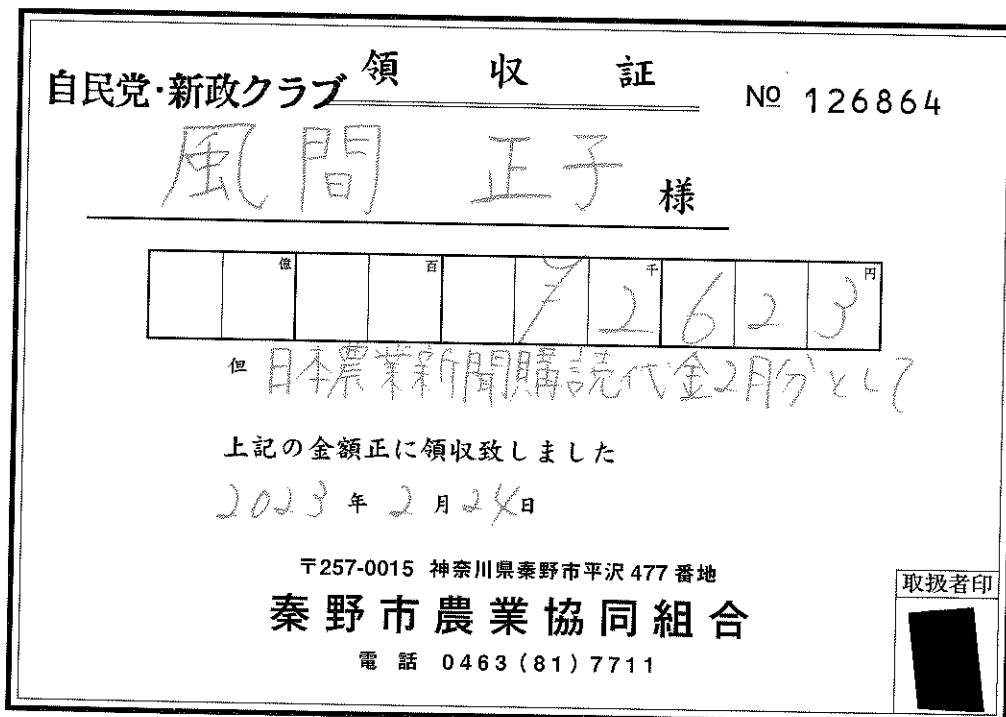 領 収 証
自民党・新政クラブ
№ 126864
風間 正子 様
億 百 千 円
¥2623
但 日本農業新聞購読代金2月分として
上記の金額正に領収致しました
2023年2月24日
〒257-0015 神奈川県秦野市平沢477番地
秦野市農業協同組合
電話 0463(81)7711
取扱者印